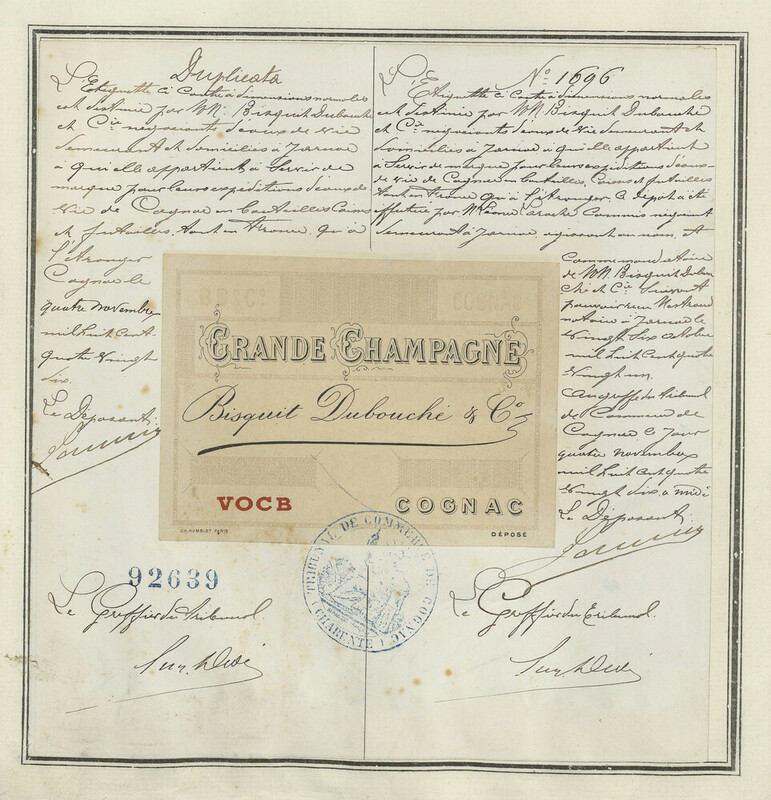 Duplicata
L'Etiquette ci Contre à dimensions normales
est destinée par MM. Bisquit Dubouché
et Cie négociants d'eaux de vie
demeurant et domiciliés à Jarnac
à qui elle appartient à servir de
marque pour leurs expéditions d'eaux de
vie de Cognac en bouteilles Caisses
et futailles, tant en France, qu'à
l'étranger
Cognac le
quatre novembre
mil huit cent
quatre vingt
six.
Le Déposant
No 1696
L'Etiquette ci Contre à dimensions normales
est destinée par MM Bisquit Dubouché
et Cie négociants d'eaux de vie demeurant et
domiciliés à Jarnac à qui elle appartient
à servir de marque pour leurs expéditions d'eaux
de vie de Cognac en bouteilles, Caisses et futailles
tant en France qu'à l'étranger. Ce dépôt a été
effectué par Mr Commis négociant
demeurant à Jarnac, agissant au nom et
comme mandataire
de MM. Bisquit Dubou
ché et Cie suivant
pouvoir reçu
notaire à Jarnac le
vingt six octobre
mil huit cent quatre
vingt un.
Au greffe du tribunal
de Commerce de
Cognac le jour
quatre novembre
mil huit cent quatre
vingt six à midi
Le Déposant
BD & Co
COGNAC
GRANDE CHAMPAGNE
Bisquit Dubouché & Co
VOCB
COGNAC
CH. HUMBLOT, PARIS
DÉPOSÉ
TRIBUNAL DE COMMERCE DE COGNAC
(CHARENTE)
92639
Le Greffier du tribunal
Le Greffier du tribunal.